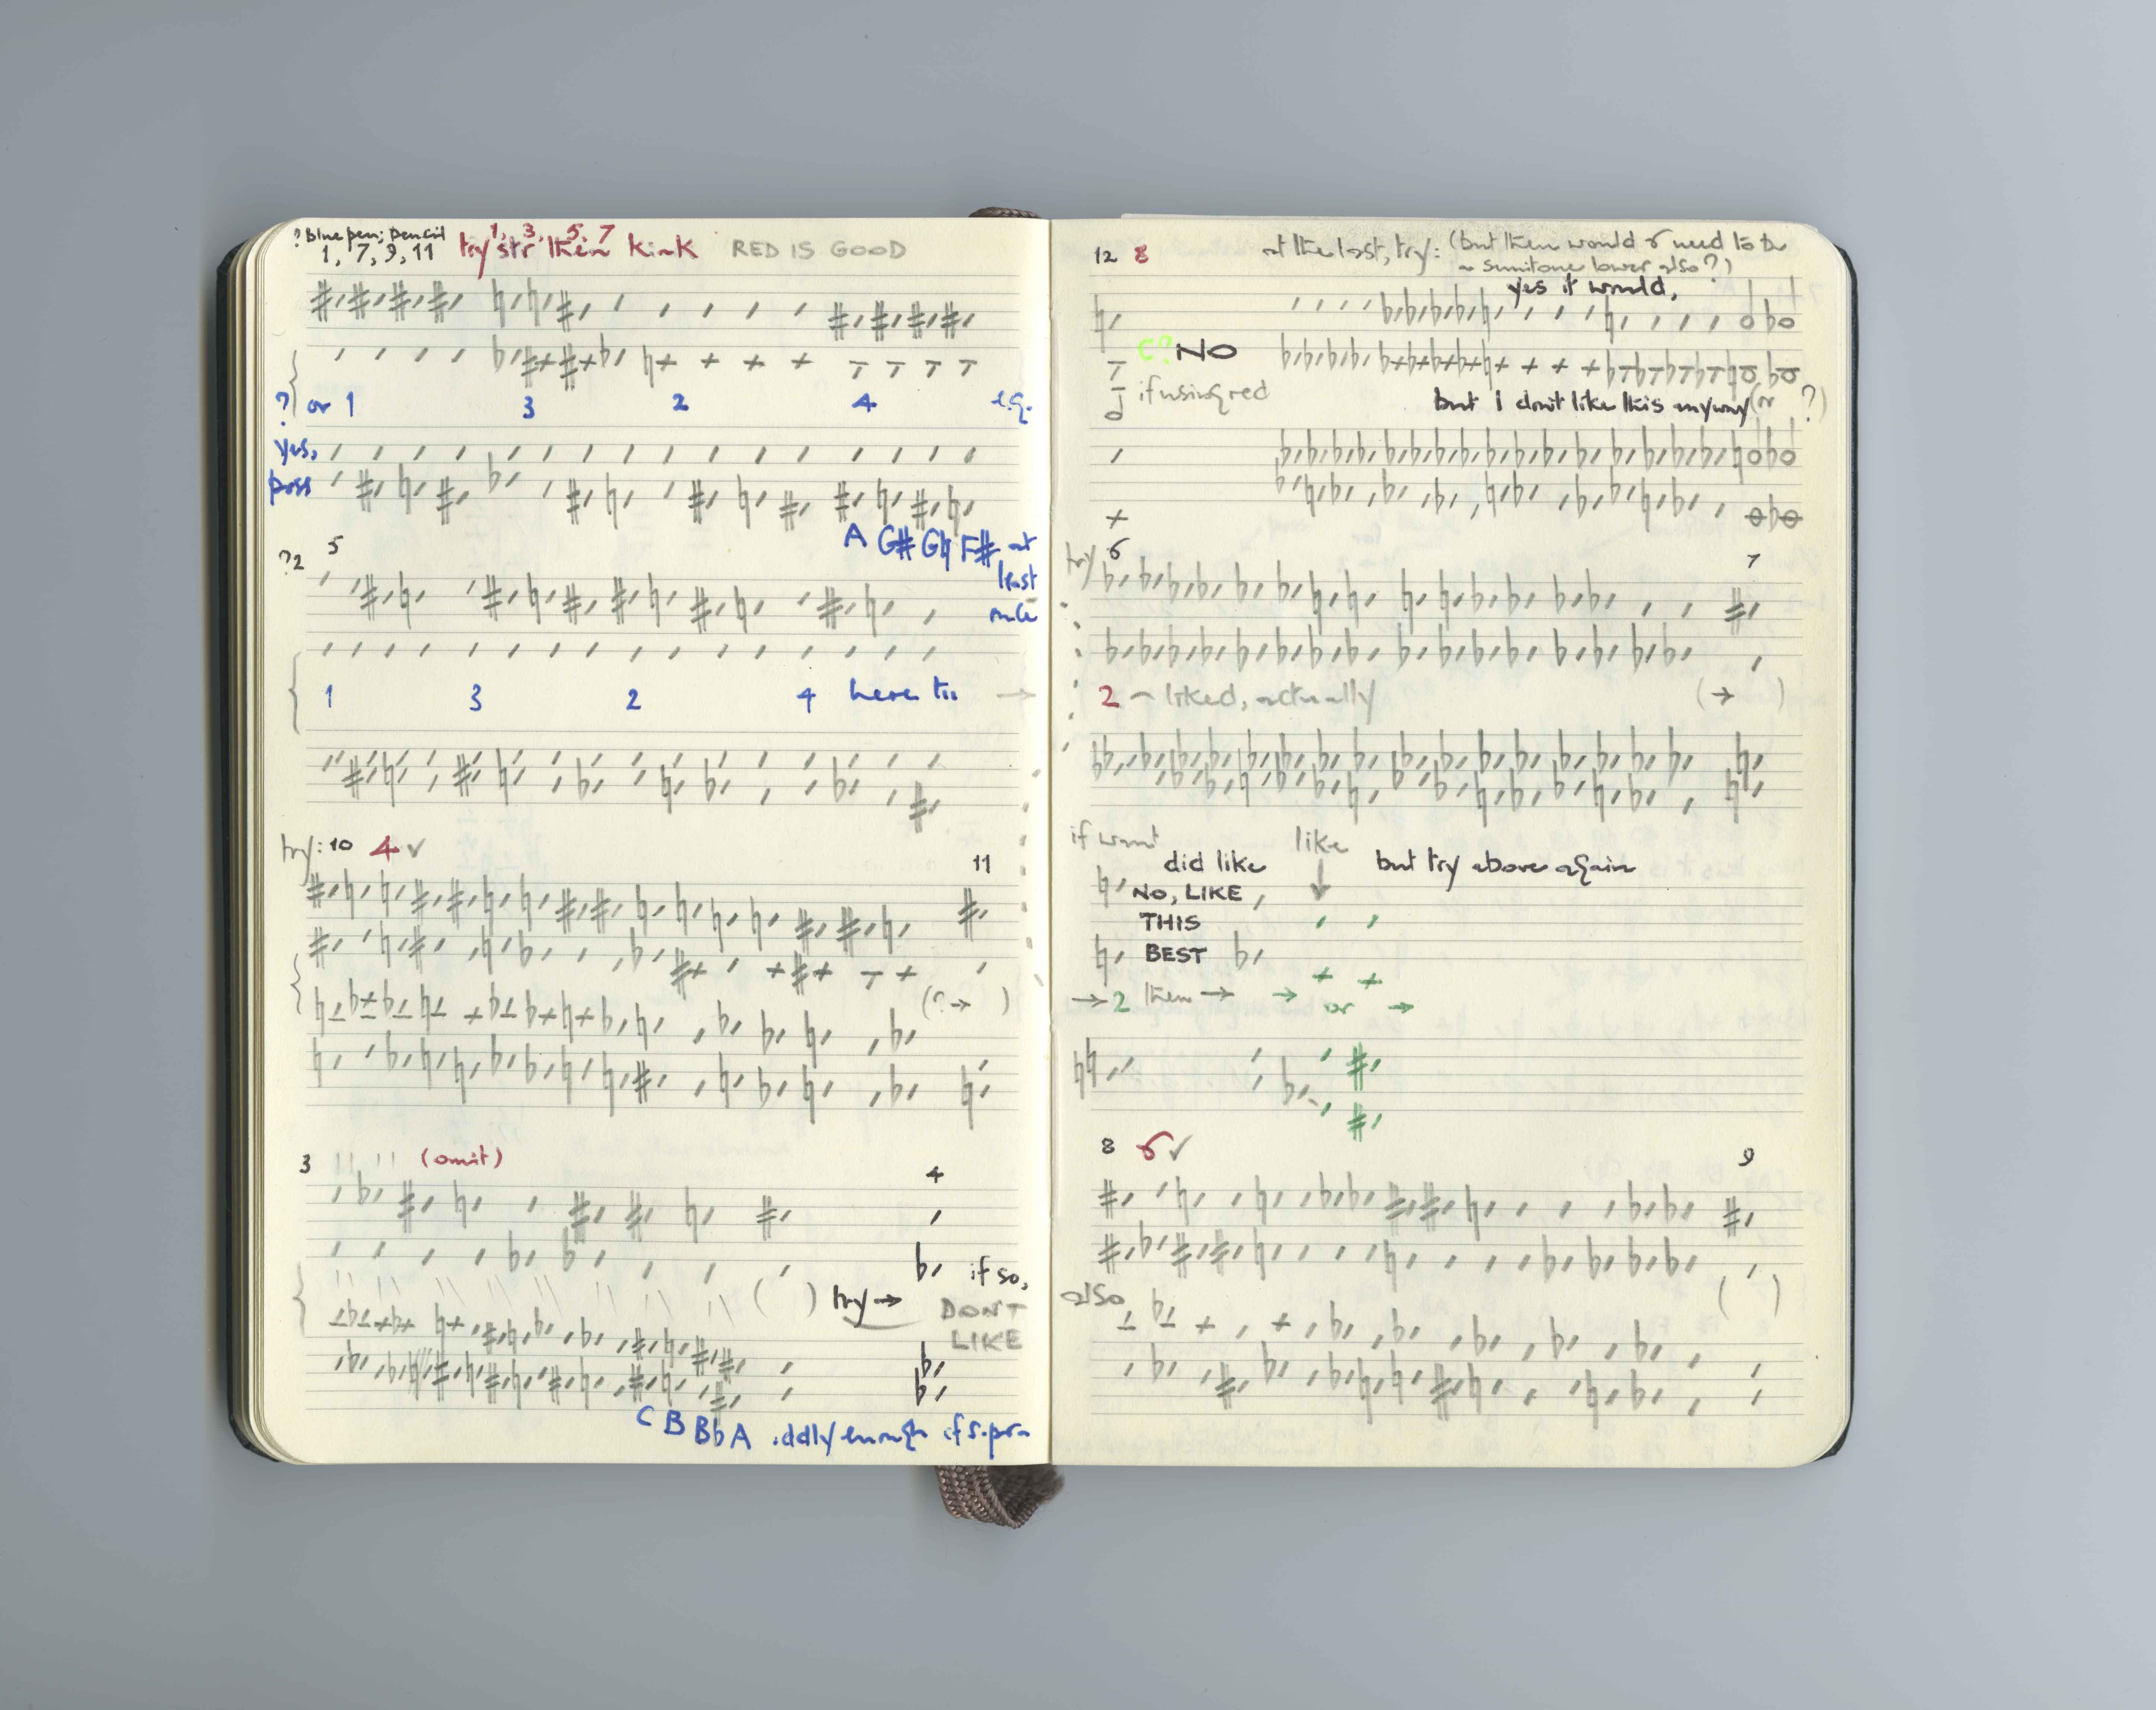 ? blue pen; pencil
1, 7, 9, 11
1, 3, 5, 7
try str then kink
RED IS GOOD
? or 1 3 2 4 e.g.
yes,
poss
A G# G♮ F# at
least
?2 5
1 3 2 4 here
try: 10 4 ✓ 11
(? → )
3 (omit) 4
( ) try → if so,
DON'T
LIKE
C B Bb A oddly enough if
12 8 at the last, try: (but then would 6 need to be
a semitone lower also?)
yes it would,
C? NO
if using red
but I don't like this anyway (or ?)
try 6 7
2 — liked, actually (→ )
if want
did like like but try above again
NO, LIKE
THIS
BEST
→ 2 then → → or →
8 6 ✓ 9
also ( )